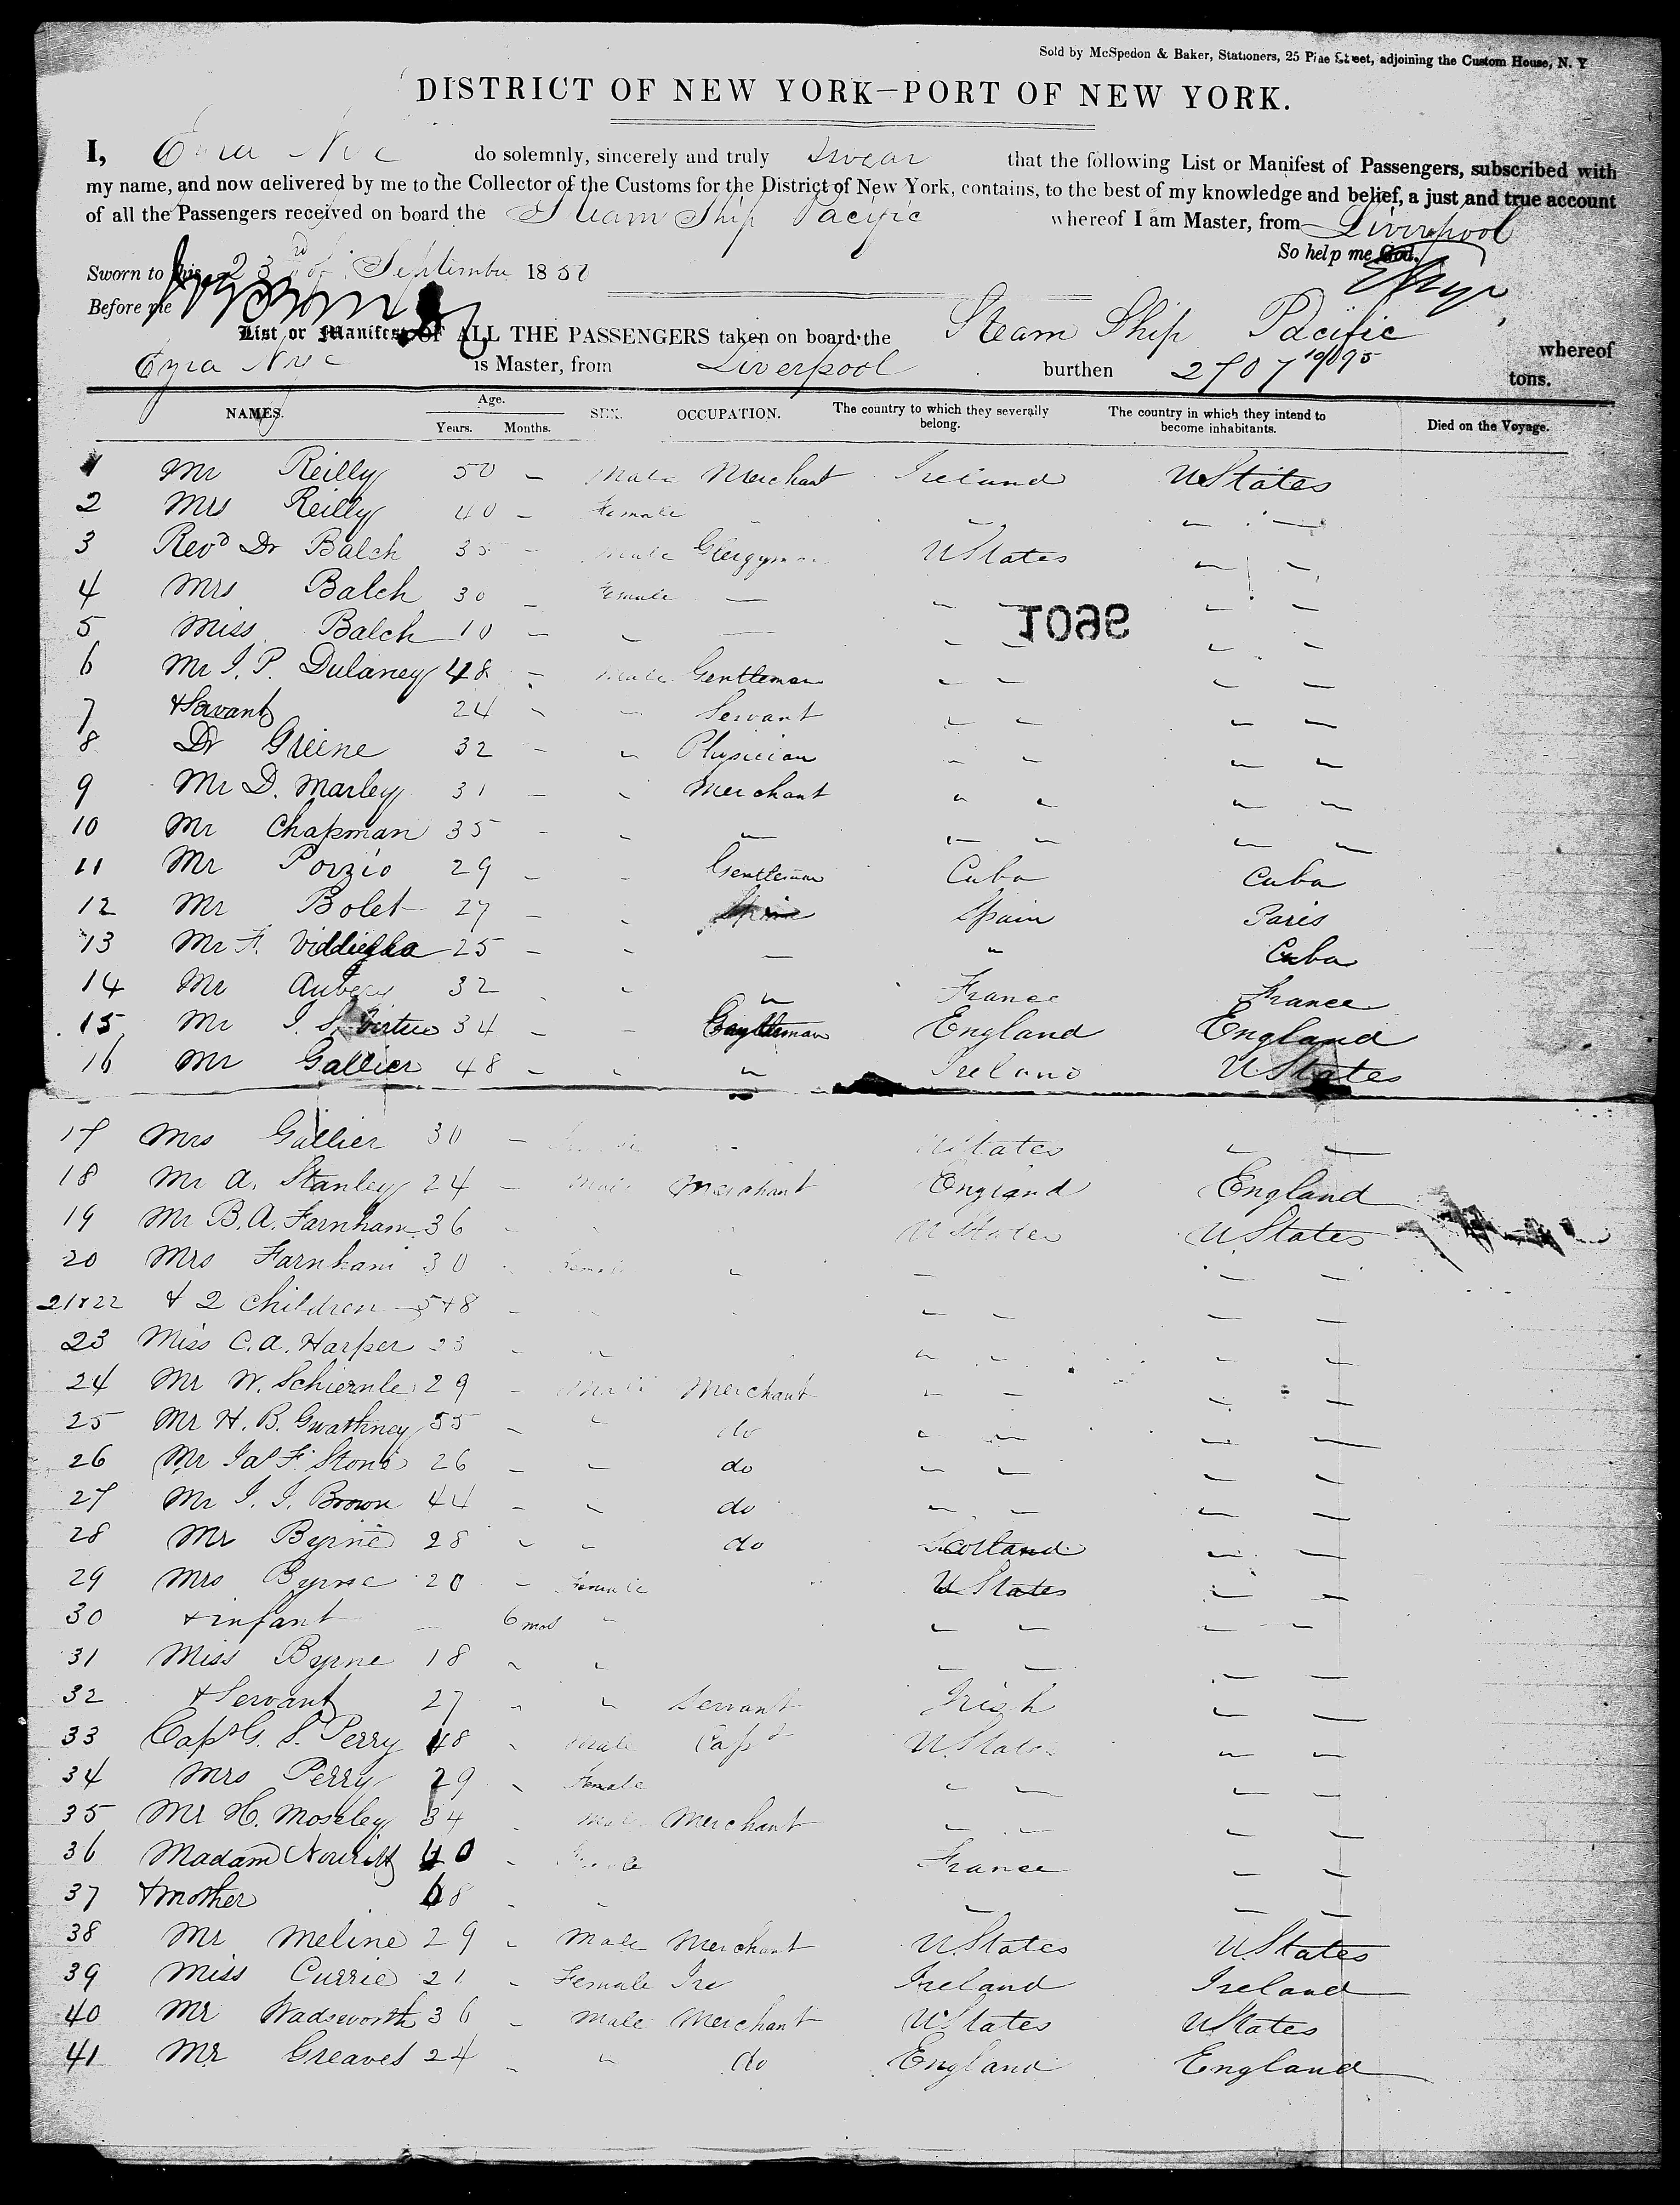 Sold by McSpedon & Baker, Stationers, 25 Pine Street, adjoining the Custom House, N. Y
DISTRICT OF NEW YORK—PORT OF NEW YORK.
I, Ezra Nye do solemnly, sincerely and truly swear that the following List or Manifest of Passengers, subscribed with
my name, and now delivered by me to the Collector of the Customs for the District of New York, contains, to the best of my knowledge and belief, a just and true account
of all the Passengers received on board the Steam Ship Pacific whereof I am Master, from Liverpool
So help me God.
Sworn to this 23rd of September 185
Before me
List or Manifest OF ALL THE PASSENGERS taken on board the Steam Ship Pacific whereof
Ezra Nye is Master, from Liverpool burthen 2707 tons.
NAMES. Age. Years. Months. SEX. OCCUPATION. The country to which they severally belong. The country in which they intend to become inhabitants. Died on the Voyage.
1 Mr Reilly 50 — Male Merchant Ireland U States
2 Mrs Reilly 40 — Female
3 Revd Dr Balch 35 — Male Clergyman U States
4 Mrs Balch 30 — Female —
5 Miss Balch 10 — —
1099
6 Mr J. P. Dulaney 48 — Male Gentleman
7 & Servant 24 Servant
8 Dr Greene 32 — Physician
9 Mr D. Marley 31 — Merchant
10 Mr Chapman 35 —
11 Mr Porzio 29 — Gentleman Cuba Cuba
12 Mr Bolet 27 — Spain Paris
13 Mr F. 25 — — " Cuba
14 Mr Aubery 32 " France France
15 Mr J. S. Virtue 34 — Gentleman England England
16 Mr Gallier 48 — " Ireland U States
17 Mrs Gallier 30 — U States
18 Mr A. Stanley 24 — Male Merchant England England
19 Mr B. A. Farnham 36 U States U States
20 Mrs Farnham 30 Female
21&22 & 2 Children 5&8
23 Miss C. A. Harper 23
24 Mr W. Schiernle 29 — Male Merchant
25 Mr H. B. Gwathney 55 do
26 Mr Jas F. Stone 26 — do
27 Mr J. J. Brown 44 — do
28 Mr Byrne 28 do Scotland
29 Mrs Byrne 20 — Female U States
30 & infant — 6 mos
31 Miss Byrne 18
32 & Servant 27 Servant Irish
33 Capt G. S. Perry 48 Male Capt U States
34 Mrs Perry 29 Female
35 Mr H. Moseley 34 Male Merchant
36 Madam 40 Female France
37 & mother 68
38 Mr Meline 29 Male Merchant U States U States
39 Miss Currie 21 Female Ire Ireland Ireland
40 Mr Wadsworth 36 Male Merchant U States U States
41 Mr Greaves 24 do England England